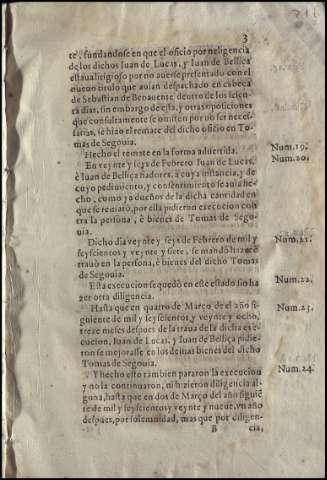 316
3
te, fundandose en que el oficio por neligencia
de los dichos Juan de Lucas, y Juan de Bellica
estaua litigioso por no auerse presentado con el
nueuo titulo que auian despachado en cabeça
de Sebastian de Benauente dentro de los sesen-
ta dias, sin embargo de esta, y otras oposiciones
que consultamente se omiten por no ser neces-
sarias, se hizo el remate del dicho oficio en To-
mas de Segouia.
Hecho el remate en la forma aduertida.
Num.19.
En veynte y seys de Febrero Juan de Lucas,
Num.20.
è Juan de Bellica fiadores, à cuya instancia, y de
cuyo pedimiento, y consentimiento se auia he-
cho, como ya dueños de la dicha cantidad en
que se remató, por ella pidieron execucion con
tra la persona, è bienes de Tomas de Sego-
uia.
Dicho dia veynte y seys de Febrero de mil y
Num.21.
seyscientos y veynte y siete, se mandò hizo
trauò en la persona, è bienes del dicho Tomas
de Segouia.
Esta execucion se quedò en este estado sin ha
Num.22.
zer otra diligencia.
Hasta que en quatro de Março del año si-
Num.23.
guiente de mil y seyscientos y veynte y ocho,
treze meses despues de la traua de la dicha exe-
cucion, Juan de Lucas, y Juan de Bellica pidie-
ron se mejorasse en los demas bienes del dicho
Tomas de Segouia.
Y hecho esto tambien pararon la execucion
Num.24.
y no la continuaron, ni hizieron diligencia al-
guna, hasta que en dos de Março del año siguiẽ
te de mil y seyscientos y veynte y nueue, vn año
despues, por solemnidad, mas que por diligen-
B cia,